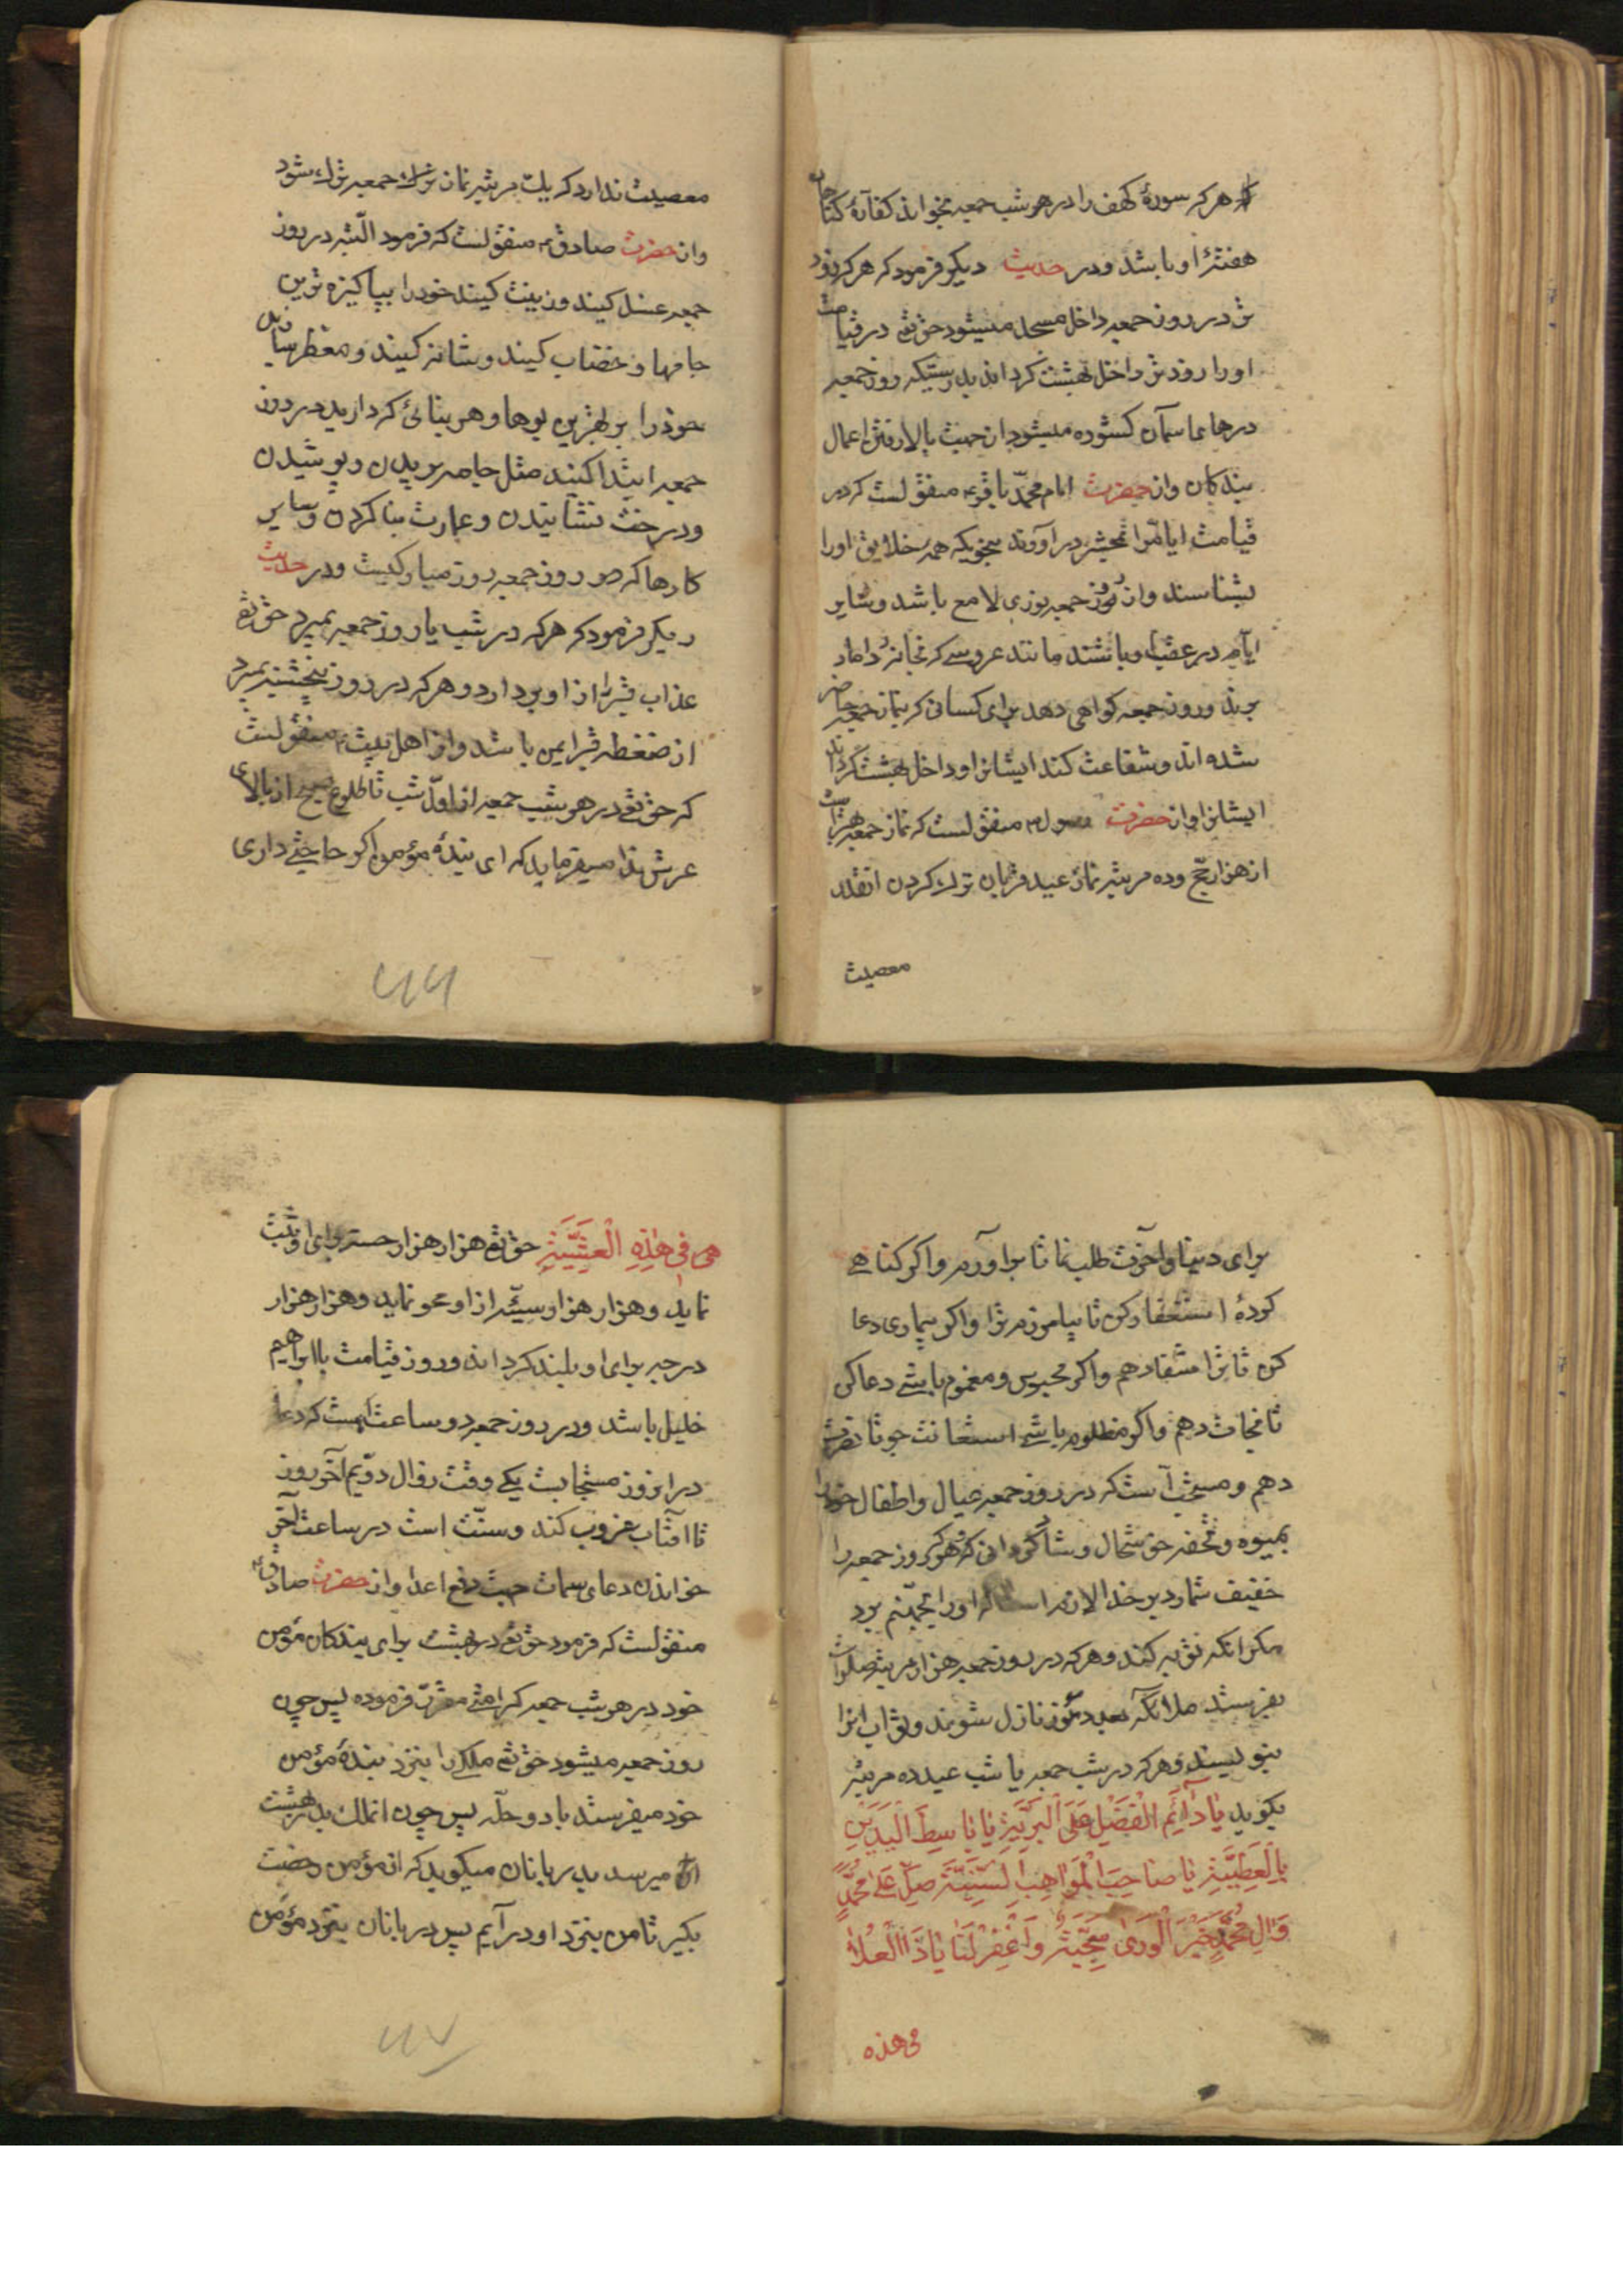 که هرکه سورهٔ کهف را در هر شب جمعه بخواند کفارهٔ کناهان
هفتهٔ او باشد و در حدیث دیکر فرمود که هرکه زود
تر در روز جمعه داخل مسجد میشود حق تع در قیامت
او را زودتر داخل بهشت کرداند بدرستیکه روز جمعه
درهای اسمان کشوده میشود از جهت بالا رفتن اعمال
بندکان و از حضرت امام محمد باقر ع منقولست که در
قیامت ایام را بمحشر در آورند بنحویکه همه خلایق او را
بشناسند و از روز جمعه نوری لامع باشد و سایر
ایام در عقب او باشند مانند عروسی که بخانهٔ داماد
برند و روز جمعه کواهی دهد برای کسانی که بنماز جمعه حاضر
شده اند و شفاعت کند ایشانرا و داخل بهشت کرداند
ایشانرا و از حضرت رسول ص منقولست که نماز جمعه بهتر است
از هزار حج و ده مرتبه نماز عید قربان ترک کردن انقدر
معصیت
معصیت ندارد که یک مرتبه نماز ترک جمعه ترک شود
و از حضرت صادق ع منقولست که فرمود البته در روز
جمعه غسل کنید و زینت کنید خود را بپاکیزه ترین
جامها و خضاب کنید و شانه کنید و معطر سازید
خود را بر بهترین بوها و هر بنائی که دارید در روز
جمعه ابتدا کنید مثل جامه بریدن و پوشیدن
و درخت نشانیدن و عمارت بنا کردن و سایر
کارها که در روز جمعه روز مبارکیست و در حدیث
دیکر فرمود که هرکه در شب یا روز جمعه بمیرد حق تع
عذاب قبر را از او بردارد و هرکه در روز پنجشنبه بمیرد
از ضغطه قبر ایمن باشد و از اهل بیت ع منقولست
که حق تع در هر شب جمعه از اول شب تا طلوع صبح از بالای
عرش ندا میفرماید که ای بندهٔ مؤمن اکر حاجتی داری
برای دنیا و اخرت طلب نما تا براورم و اکر کناهی
کردهٔ استغفار کن تا بیامرزم ترا و اکر بیماری دعا
کن تا ترا شفا دهم و اکر محبوس و مغموم باشی دعا کن
تا نجات دهم و اکر مظلوم باشی استغاثت جو تا نصرت
دهم و مستحب آنست که در روز جمعه عیال و اطفال خود را
بمیوه و تحفه خوشحال و شاکردانی که هرکه روز جمعه را
خفیف شمارد بر خدا لازم است که او را بجهنم برد
مکر انکه توبه کند و هرکه در روز جمعه هزار مرتبه صلوات
بفرستد ملائکه بعدد نازل شوند و ثواب انرا
بنویسند و هرکه در شب جمعه یا شب عید ده مرتبه
بکوید یَا دَآئِمَ الْفَضْلِ عَلَی الْبَرِیَّةِ یَا بَاسِطَ الْیَدَیْنِ
بِالْعَطِیَّةِ یَا صَاحِبَ الْمَوَاهِبِ السَّنِیَّةِ صَلِّ عَلٰی مُحَمَّدٍ
وَالِ مُحَمَّدٍ خَیْرِ الْوَریٰ سَجِیَّةً وَاغْفِرْ لَنَا یَا ذَا الْعُلیٰ
فی هذه
فِی هٰذِهِ الْعَشِیَّةِ حق تع هزار هزار حسنه برای او ثبت
نماید و هزار هزار سیّئه از او محو نماید و هزار هزار
درجه برای او بلند کرداند و روز قیامت با ابراهیم
خلیل باشد و در روز جمعه دو ساعت است که دعا
در انروز مستجابست یکی وقت زوال دویم آخر روز
تا آفتاب غروب کند و سنّت است در ساعت آخر
خواندن دعای سمات جهت دفع اعدا و از حضرت صادق ع
منقولست که فرمود حق تع در بهشت برای بندکان مؤمن
خود در هر شب جمعه کرامتی مقرّر فرموده پس چون
روز جمعه میشود حق تع ملکی را بنزد بندهٔ مؤمن
خود میفرستد با دو حلّه پس چون انملک بدر بهشت
او میرسد بدربانان میکوید که از مؤمن رخصت
بکیر تا من بنزد او درآیم پس دربانان بنزد مؤمن